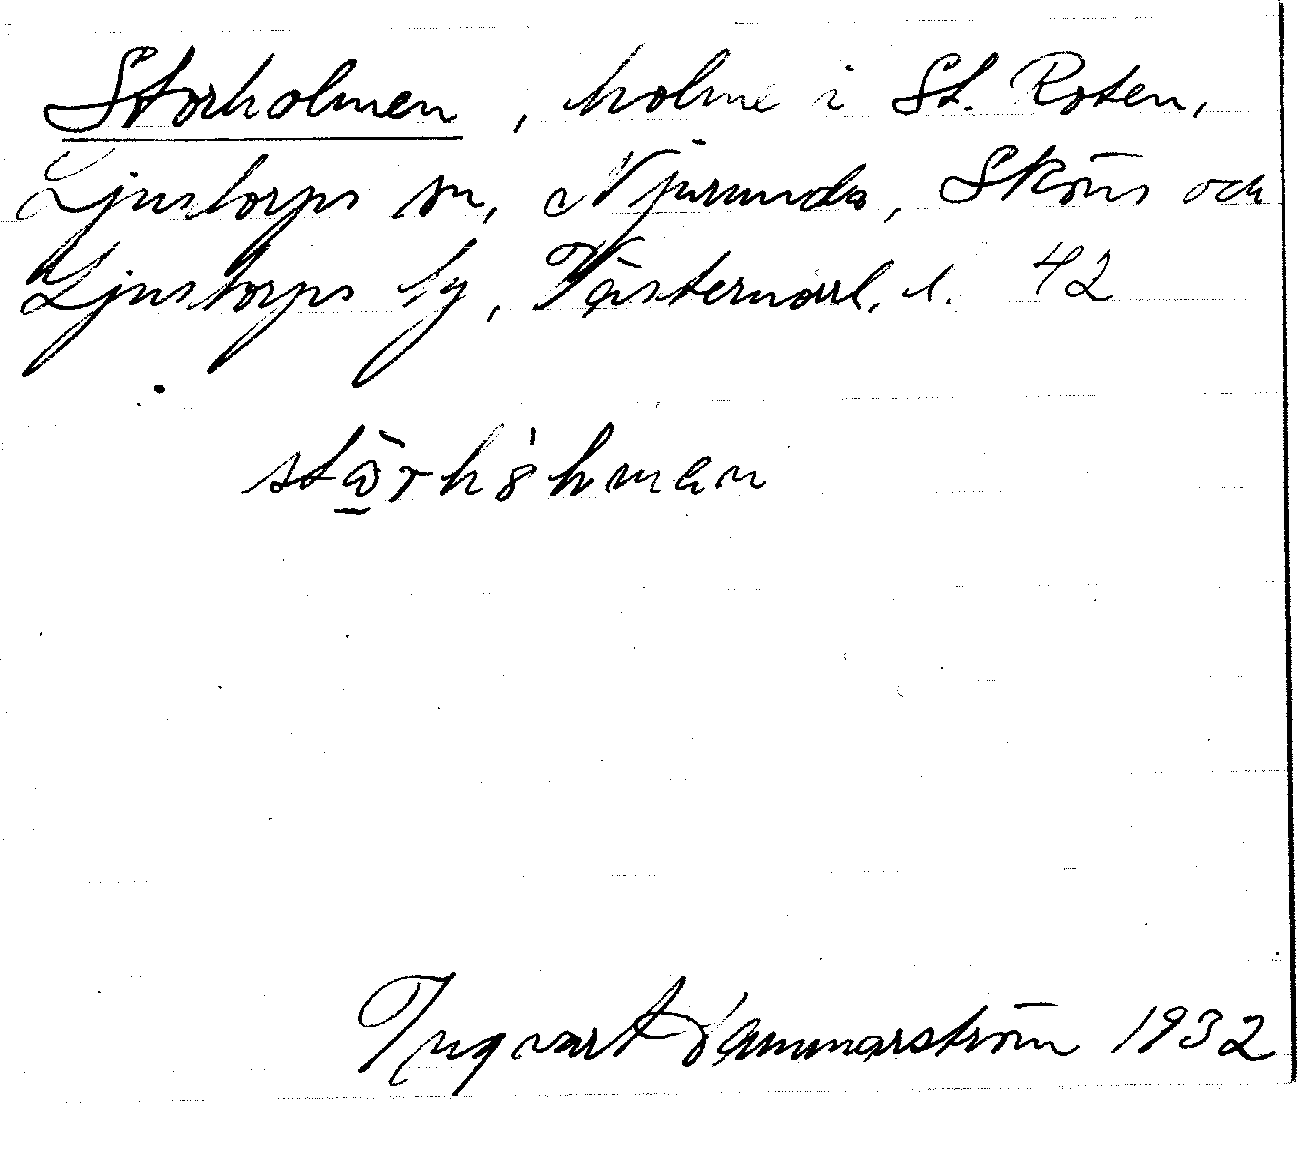 Storholmen, holme i St. Roten,
Ljustorps sn, Njurunda, Sköns och
Ljustorps tg, Västernorrl. l. 42
Ingvart Hammarström 1932